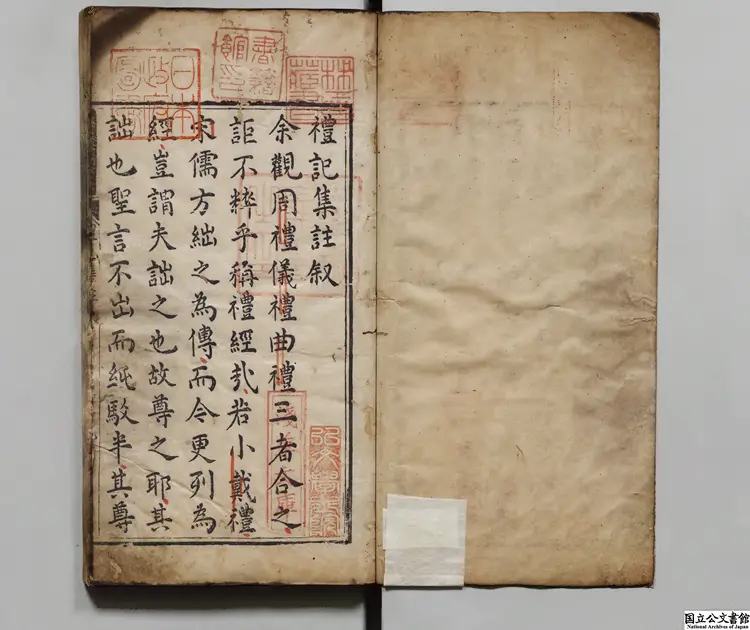 禮記集註叙
余觀周禮儀禮曲禮三者合之
詎不粹乎稱禮經㢤若小戴禮
宋儒方絀之為傳而今更列為
經豈謂夫詘之也故尊之耶其
詘也聖言不出而純駁半其尊
林氏藏書
書籍館印
日本政府圖書
国立公文書館
National Archives of Japan